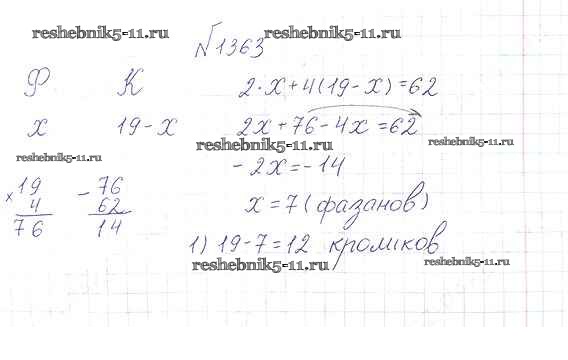 reshebnik5-11.ru
reshebnik5-11.ru
№1363
Ф К 2·x+4(19-x)=62
x 19-x 2x+76-4x=62
reshebnik5-11.ru
reshebnik5-11.ru
reshebnik5-11.ru
-2x=-14
×19 -76
4 62
76 14
x=7 (фазанов)
1) 19-7=12 кроликов
reshebnik5-11.ru
reshebnik5-11.ru